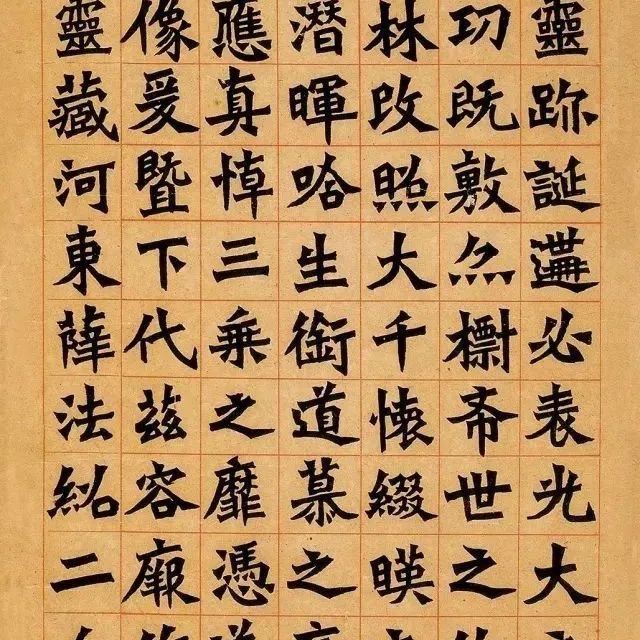 靈跡誕遘必表光大
功既敷亦標希世之
林改照大千懷綴暎
潛暉啥生銜道慕之
應真悼三乘之靡憑
像爰暨下代茲容廓
靈藏河東薛法紹二